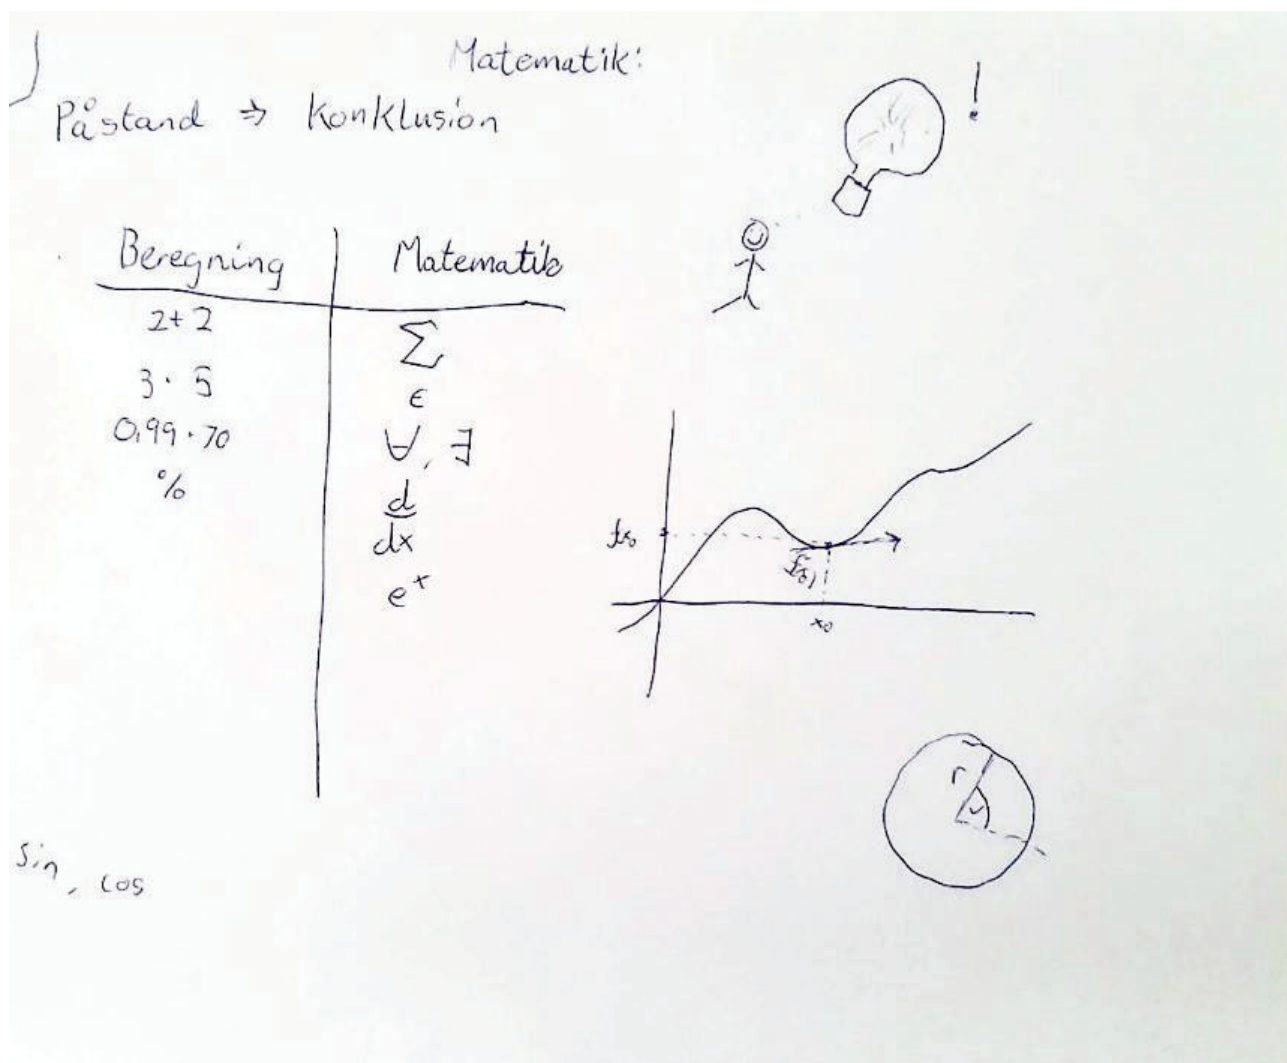 Matematik:
Påstand ⇒ Konklusion
!
Beregning | Matematik
2+2
3·5
0,99·70
%
Σ
ϵ
∀, ∃
d
dx
e^x
x₀
r
v
Sin, cos